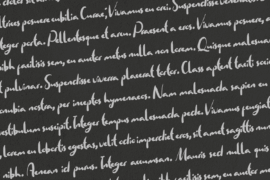 ultrices posuere cubilia Curae; Vivamus en orci. Suspendisse
Integer porta. Pellentesque et arcu. Praesent a orci. Vivamus posuere,
nibh facilisis sem, eu auctor metus nulla non lorem. Quisque malesuada
pulvinar. Suspendisse viverra placerat tortor. Class aptent taciti
conubia nostra, per inceptos hymenaeos. Nam malesuada sapien eu
vestibulum suscipit. Integer tempus malesuada pede. Vivamus feugiat
lorem eu lobortis egestas, velit odio imperdiet eros, sit amet sagittis nunc
nibh. Aenean id purus. Integer accumsan. Mauris sed nulla quis